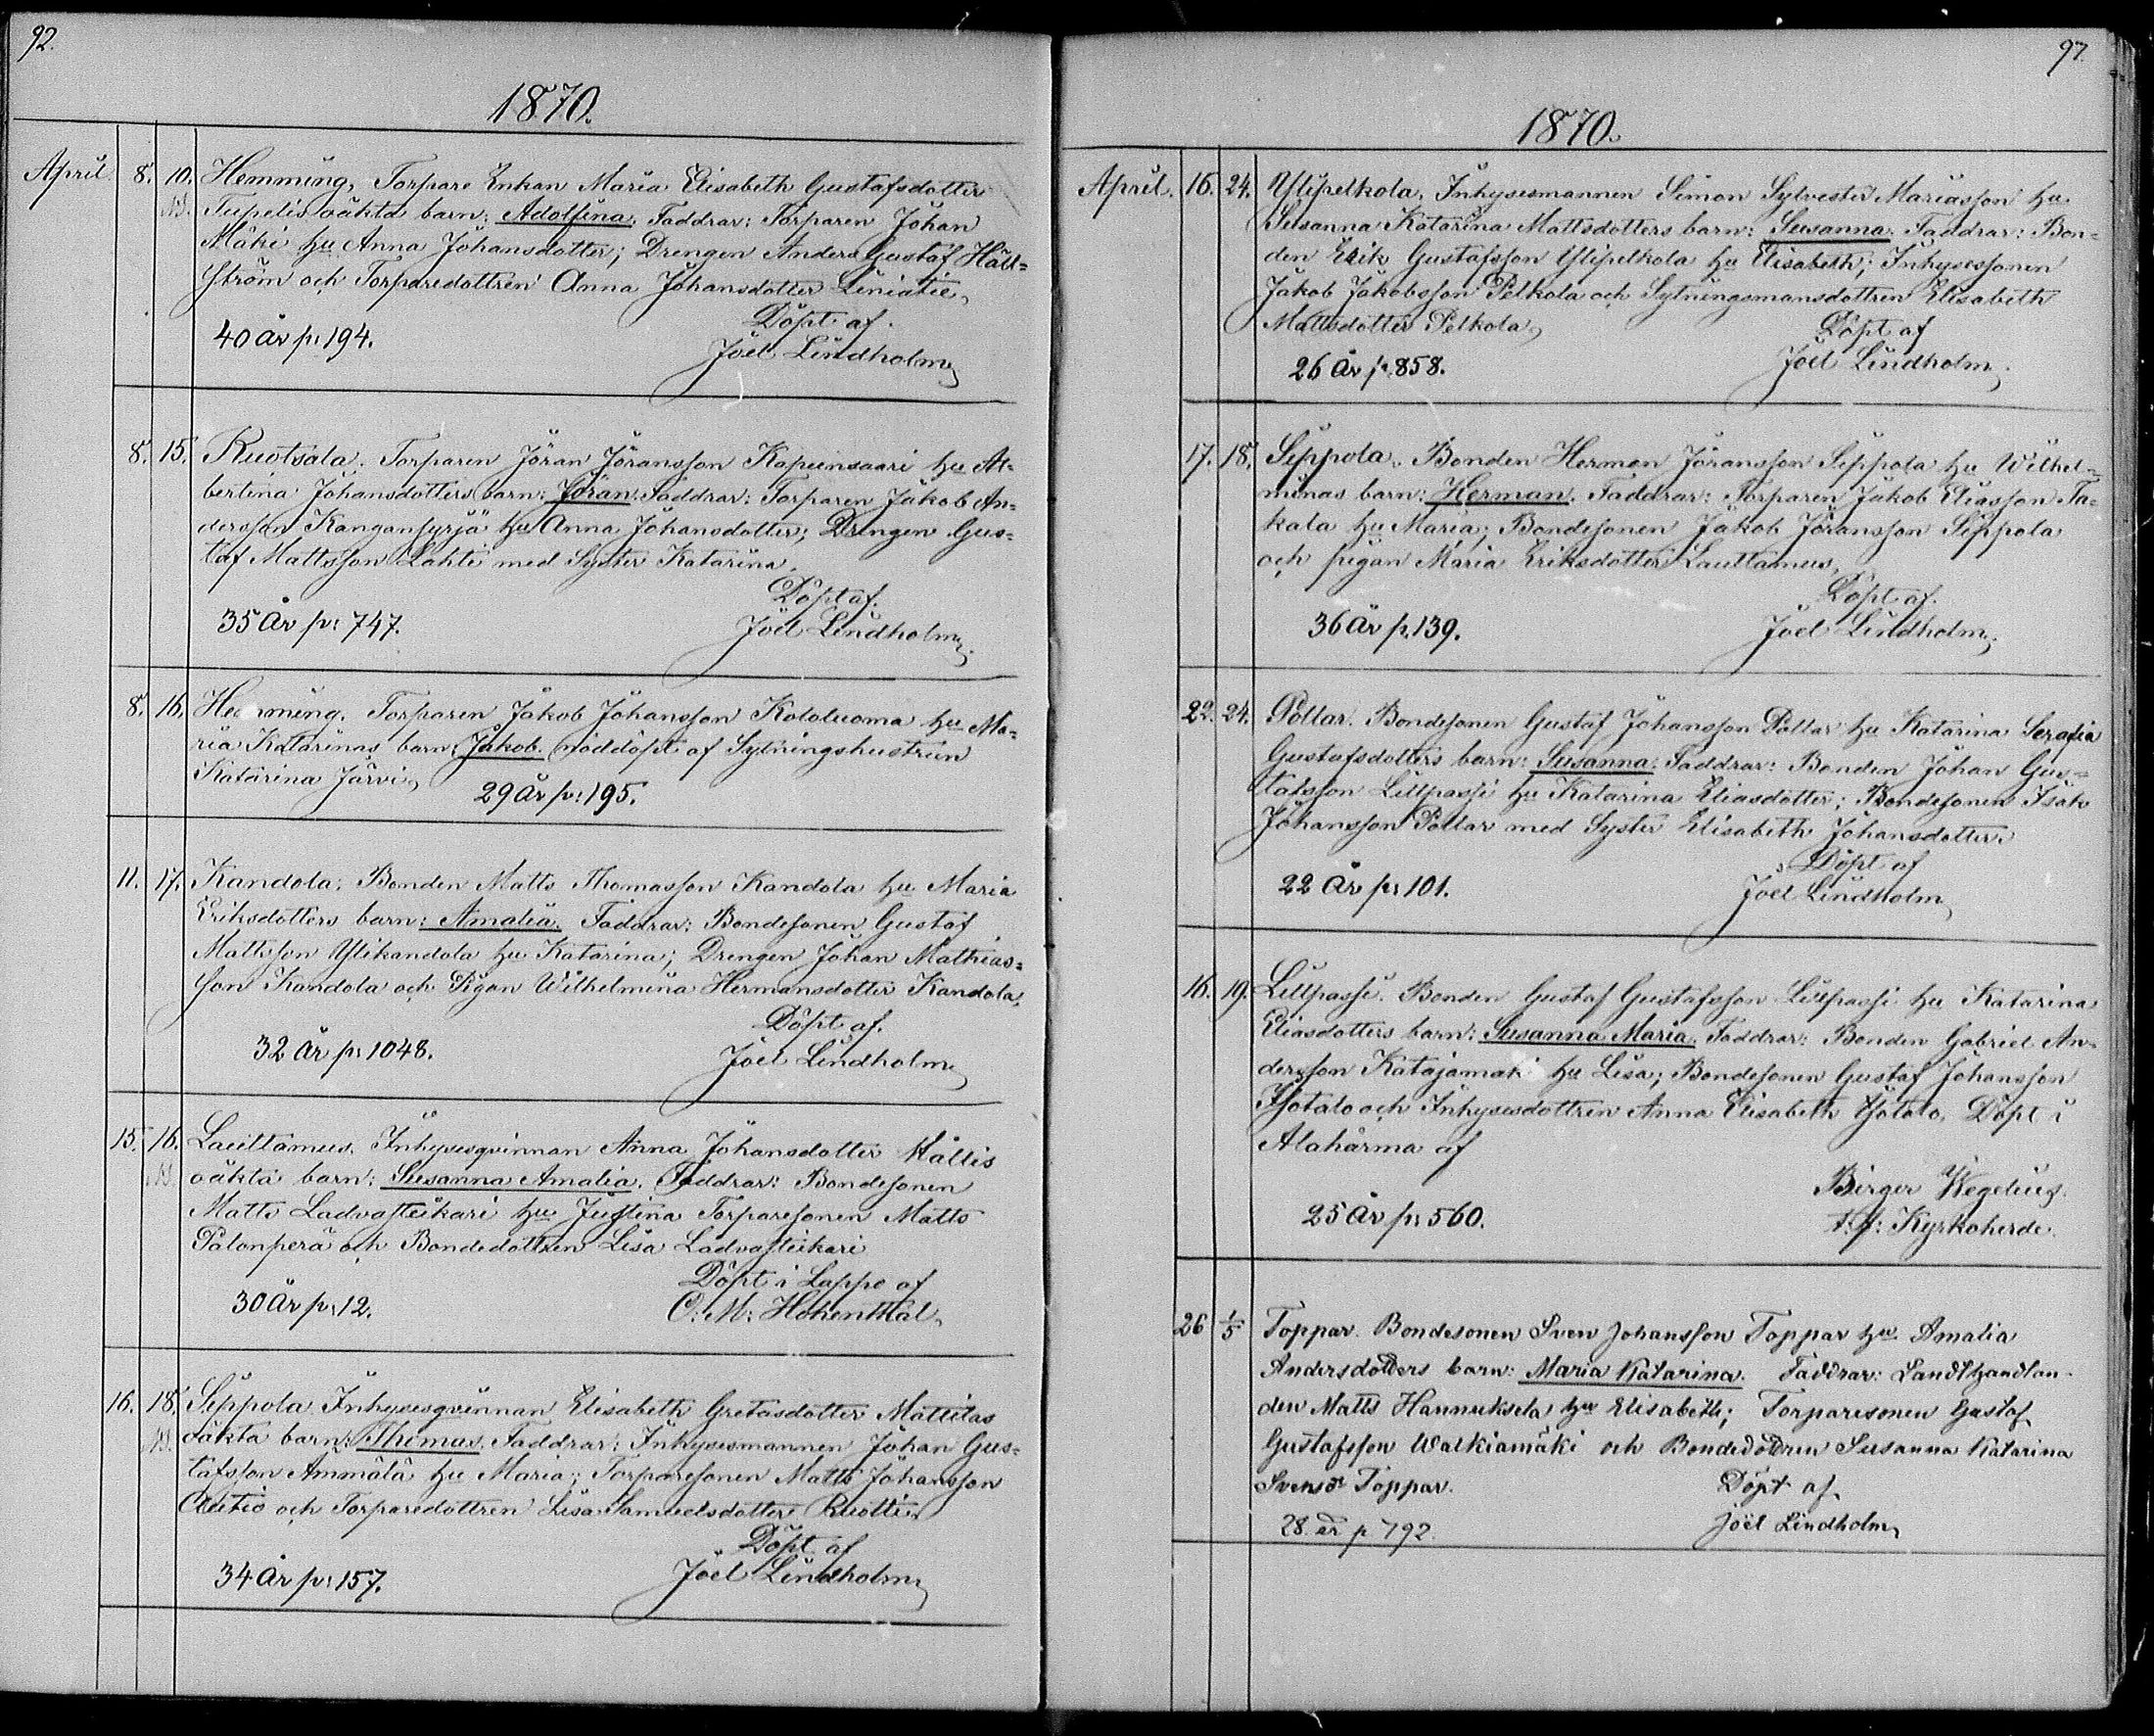 92.
1870.
April 8. 10. Hemming, Torpare Enkan Maria Elisabeth Gustafsdotter
Tupelis oäkta barn: Adolfina. Faddrar: Torparen Johan
Mäki hu Anna Johansdotter; Drengen Anders Gustaf Häll-
ström och Torparedottren Anna Johansdotter
Döpt af.
40 år p: 194. Joel Lindholm
8. 15. Ruotsala. Torparen Jöran Jöransson Kapeensaari hu Al-
bertina Johansdotters barn: Jöran. Faddrar: Torparen Jakob An-
dersson Kangansyrjä hu Anna Johansdotter; Drengen Gus-
taf Mattsson Lahti med Syster Katarina.
Döpt af.
35 år p: 747. Joel Lindholm
8. 16. Hemming. Torparen Jakob Johansson Kololuoma hu Ma-
ria Katarinas barn: Jakob. nöddöpt af Sytningshustrun
Katarina Järvi
29 år p: 195.
11. 17. Kandola. Bonden Matts Thomasson Kandola hu Maria
Eriksdotters barn: Amalia. Faddrar: Bondesonen Gustaf
Mattsson Ylikandola hu Katarina; Drengen Johan Mathias-
son Kandola och Pigan Wilhelmina Hermansdotter Kandola.
Döpt af.
32 år p: 1048. Joel Lindholm
15. 16. Lauttamus. Inhysesqvinnan Anna Johansdotter Källis
oäkta barn: Susanna Amalia. Faddrar: Bondesonen
Matts Ladvasteikari hu Justina Torparesonen Matts
Palonperä och Bondedottren Lisa Ladvasteikari
Döpt i Lappo af
30 år p: 12. C. M. Hohenthal.
16. 18. Seppola Inhysesqvinnan Elisabeth Gretasdotter Mattilas
oäkta barn: Thomas. Faddrar: Inhysesmannen Johan Gus-
tafsson Ammälä hu Maria; Torparesonen Matts Johansson
Autio och Torparedottren Lisa Samuelsdotter Ruotti
Döpt af
34 år p: 157. Joel Lindholm
97.
1870.
April. 16. 24. Ylipelkola. Inhysesmannen Simon Sylvester Mariasson hu
Susanna Katarina Mattsdotters barn: Susanna. Faddrar: Bon-
den Erik Gustafsson Ylipelkola hu Elisabeth; Inhysessonen
Jakob Jakobsson Pelkola och Sytningsmansdottren Elisabeth
Mattsdotter Pelkola
Döpt af
26 år p. 858. Joel Lindholm.
17. 18. Seppola. Bonden Herman Jöransson Seppola hu Wilhel-
minas barn: Herman. Faddrar: Torparen Jakob Eliasson Ta-
kala hu Maria; Bondesonen Jakob Jöransson Seppola
och pigan Maria Eriksdotter Lauttamus.
Döpt af.
36 år p. 139. Joel Lindholm.
22. 24. Pottar. Bondesonen Gustaf Johansson Pottar hu Katarina Serafia
Gustafsdotters barn: Susanna. Faddrar: Bonden Johan Gus-
tafsson Lillpassi hu Katarina Eliasdotter; Bondesonen Isak
Johansson Pottar med Syster Elisabeth Johansdotter.
Döpt af
22 år p: 101. Joel Lindholm
16. 19. Lillpassi. Bonden Gustaf Gustafsson Lillpassi hu Katarina
Eliasdotters barn: Susanna Maria. Faddrar: Bonden Gabriel An-
dersson Katajamäki hu Lisa; Bondesonen Gustaf Johansson
Isotalo och Inhysesdottren Anna Elisabeth Isotalo. Döpt i
Alahärma af
Birger Wegelius.
25 år p: 560. t. f. Kyrkoherde.
26 1/5 Toppar. Bondesonen Sven Johansson Toppar hu Amalia
Andersdotters barn: Maria Katarina. Faddrar: Landthandlan-
den Matts Hannuksela hu Elisabeth; Torparesonen Gustaf
Gustafsson Walkiamäki och Bondedottren Susanna Katarina
Svensdr Toppar. Döpt af
28 år p 792. Joel Lindholm